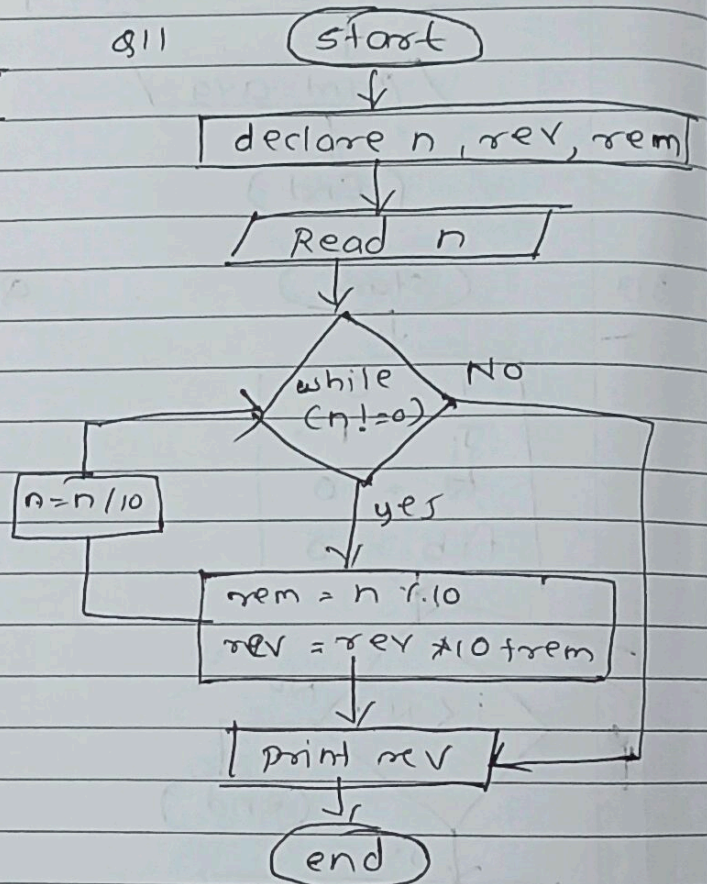 Q11
start
declare n, rev, rem
Read n
while
(n!=0)
NO
n=n/10
yes
rem = n %10
rev = rev *10 +rem
print rev
end